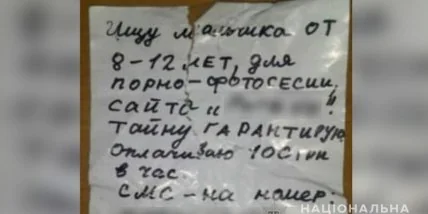 Ищу мальчика от
8-12 лет, для
порно-фотосесии
сайта "
Тайну гарантирую
Оплачиваю
в час
СМС-на номер:
НАЦІОНАЛЬНА